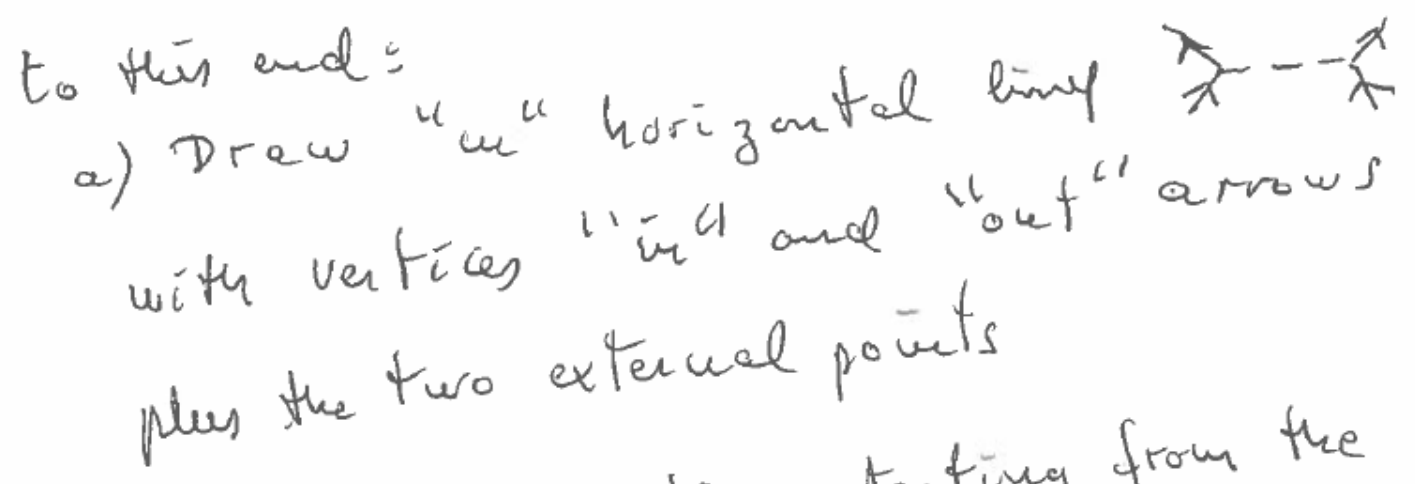 to this end:
a) Draw "m" horizontal lines
with vertices "in" and "out" arrows
plus the two external points
from the